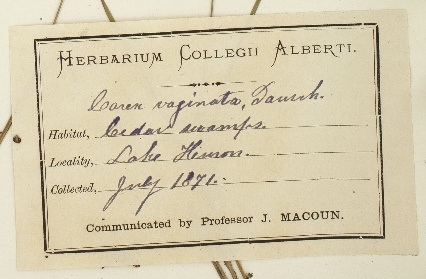 HERBARIUM COLLEGII ALBERTI.
Carex vaginata, Tausch.
Habitat, Cedar swamps.
Locality, Lake Huron.
Collected, July 1871.
Communicated by Professor J. MACOUN.